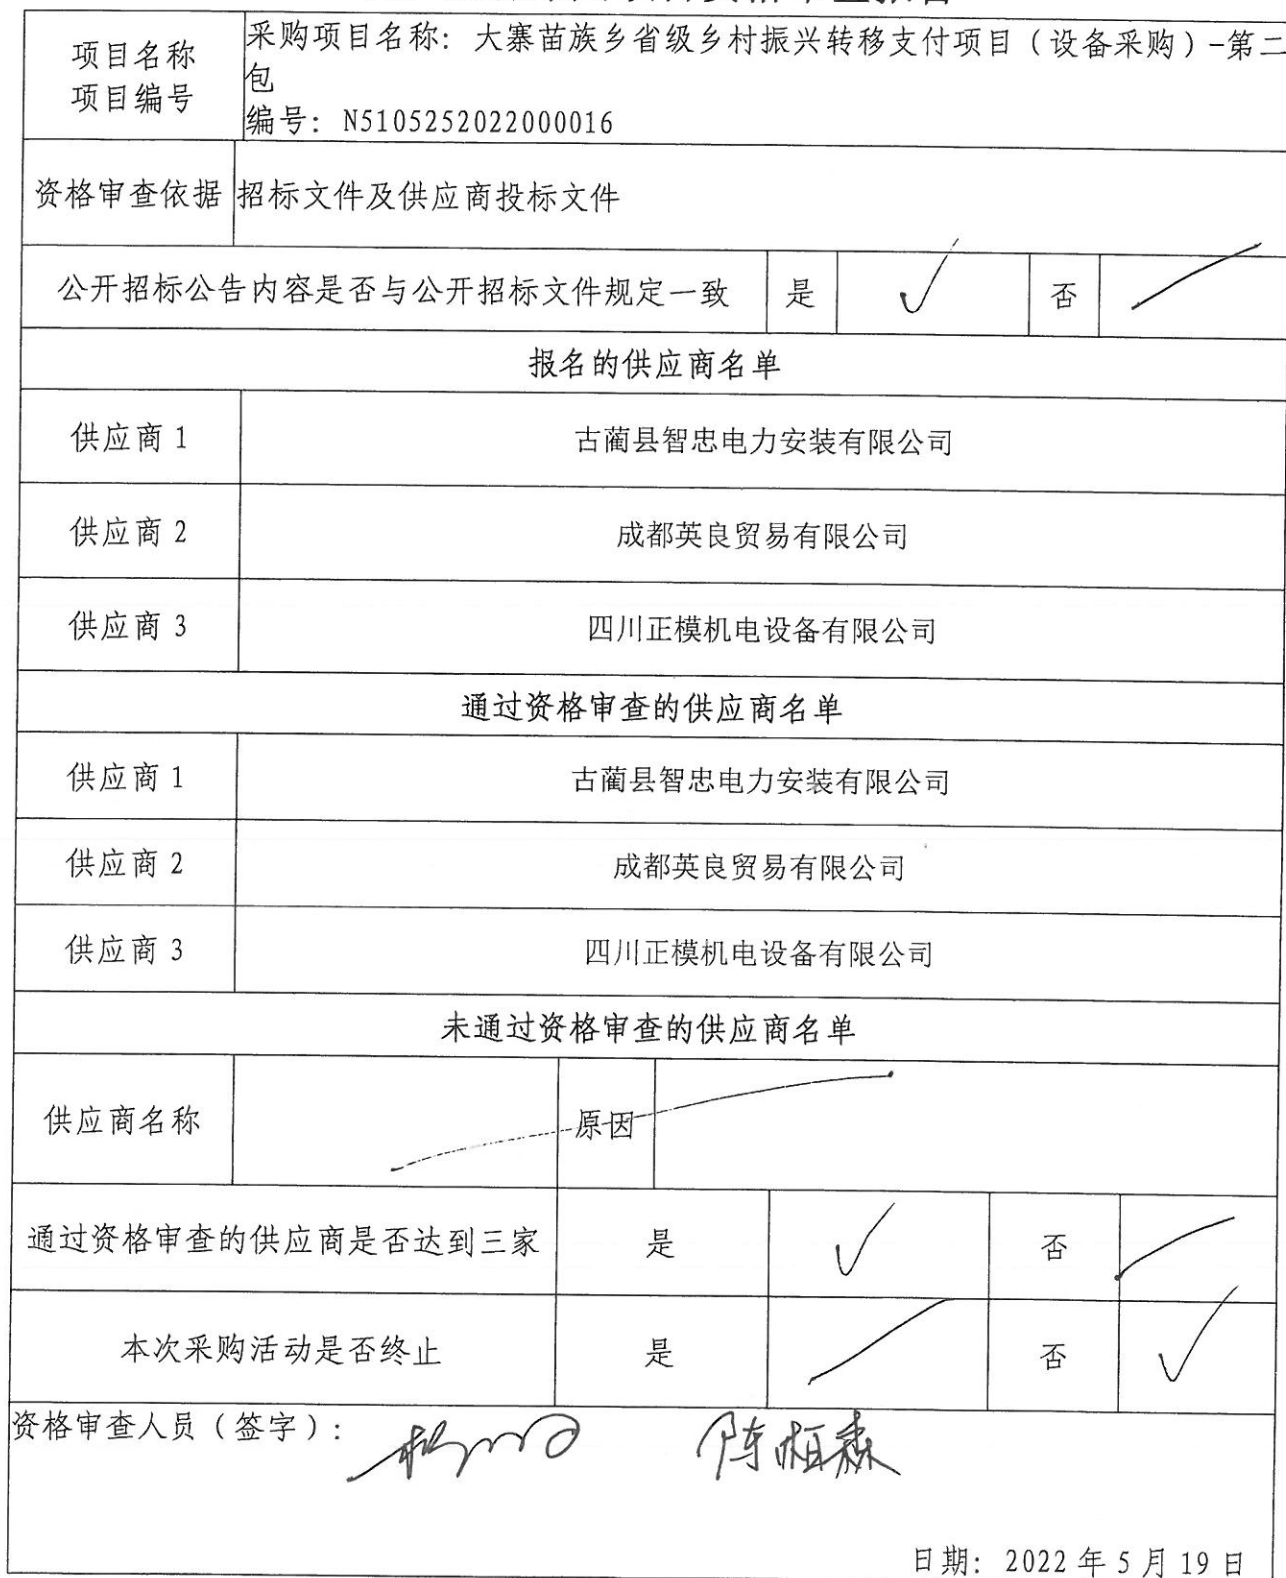 项目名称
项目编号
采购项目名称：大寨苗族乡省级乡村振兴转移支付项目（设备采购）-第二
包
编号：N5105252022000016
资格审查依据 招标文件及供应商投标文件
公开招标公告内容是否与公开招标文件规定一致 是 ✓ 否
报名的供应商名单
供应商 1 古蔺县智忠电力安装有限公司
供应商 2 成都英良贸易有限公司
供应商 3 四川正模机电设备有限公司
通过资格审查的供应商名单
供应商 1 古蔺县智忠电力安装有限公司
供应商 2 成都英良贸易有限公司
供应商 3 四川正模机电设备有限公司
未通过资格审查的供应商名单
供应商名称 原因
通过资格审查的供应商是否达到三家 是 ✓ 否
本次采购活动是否终止 是 否 ✓
资格审查人员（签字）： 陈栢森
日期：2022 年 5 月 19 日